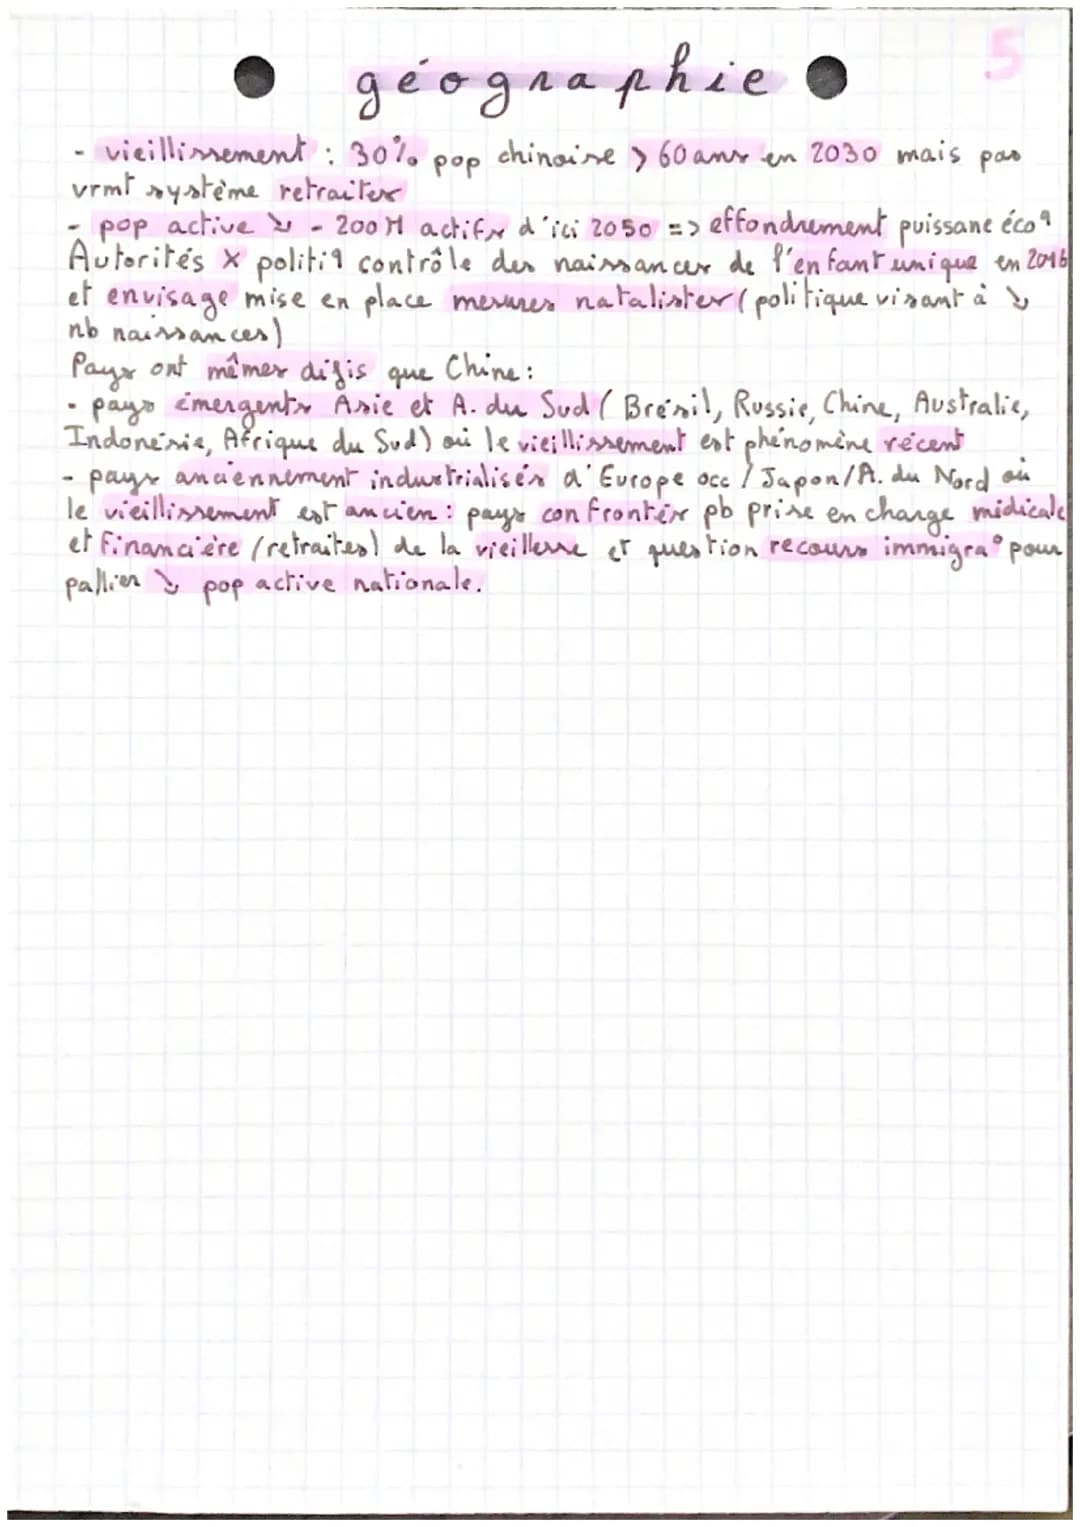 5
géographie
- vieillissement : 30% pop chinoise > 60 ans en 2030 mais pas
vrmt système retraites
- pop active ↘ - 200 M actifs d'ici 2050 => effondrement puissane éco^q
Autorités X politiq contrôle des naissances de l'enfant unique en 2016
et envisage mise en place mesures natalistes (politique visant à ↘
nb naissances)
Pays ont mêmes défis que Chine :
- pays émergents Asie et A. du Sud ( Brésil, Russie, Chine, Australie,
Indonésie, Afrique du Sud) où le vieillissement est phénomène récent
- pays anciennement industrialisés d'Europe occ / Japon/A. du Nord où
le vieillissement est ancien : pays confrontés pb prise en charge médicale
et financière (retraites) de la vieillesse et question recours immigra° pour
pallier ↘ pop active nationale.